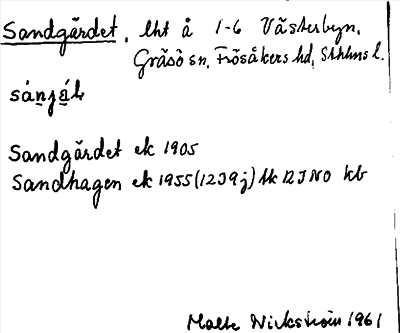 Sandgärdet, lht å 1-6 Västerbyn,
Gräsö sn, Frösåkers hd, Sthlms l.
sánjáḷ
Sandgärdet ek 1905
Sandhagen ek 1955 (12J9j) tk 12J NO kb
Malte Nickström 1961